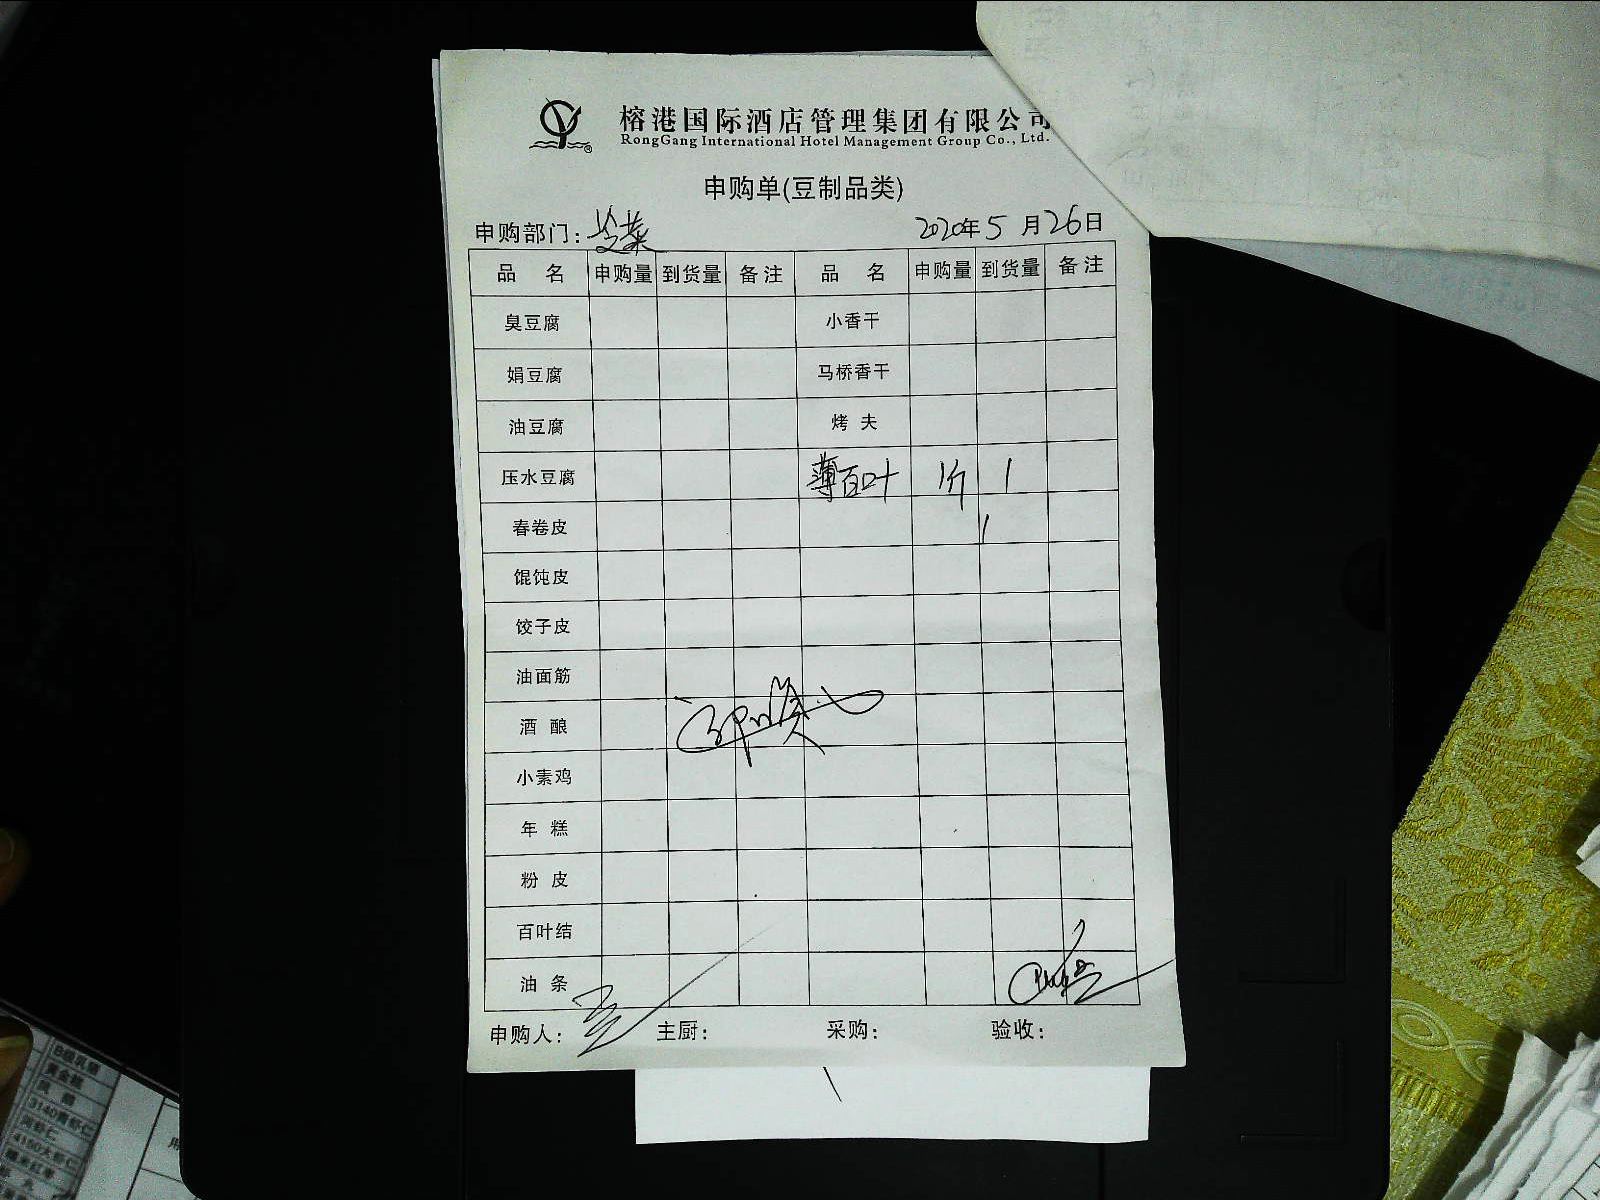 榕港国际酒店管理集团有限公司
RongGang International Hotel Management Group Co., Ltd.
申购单(豆制品类)
申购部门: 冷菜 2020年5月26日
品名 申购量 到货量 备注 品名 申购量 到货量 备注
臭豆腐 小香干
娟豆腐 马桥香干
油豆腐 烤夫
压水豆腐 薄百叶 1斤 1
春卷皮 1
馄饨皮
饺子皮
油面筋
酒酿
小素鸡
年糕
粉皮
百叶结
油条
申购人: 主厨: 采购: 验收: